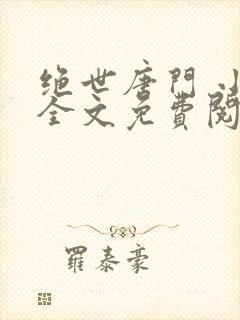 绝世唐門小
全文免費閱
羅泰豪